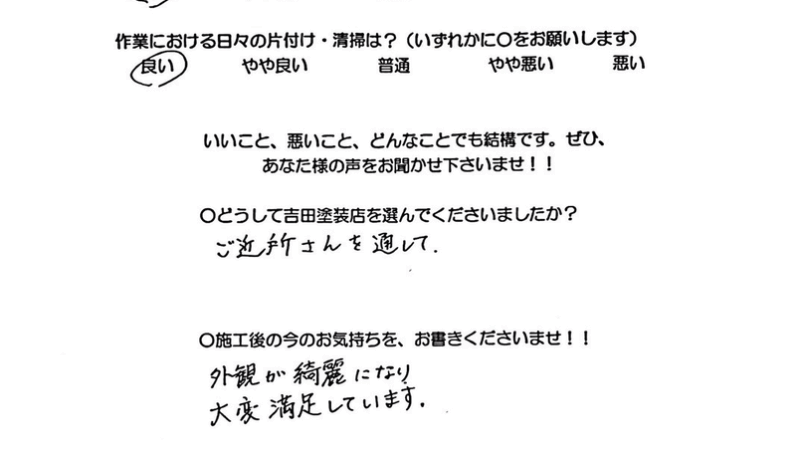 作業における日々の片付け・清掃は？（いずれかに〇をお願いします）
良い やや良い 普通 やや悪い 悪い
いいこと、悪いこと、どんなことでも結構です。ぜひ、
あなた様の声をお聞かせ下さいませ！！
〇どうして吉田塗装店を選んでくださいましたか？
ご近所さんを通して.
〇施工後の今のお気持ちを、お書きくださいませ！！
外観が綺麗になり
大変満足しています.